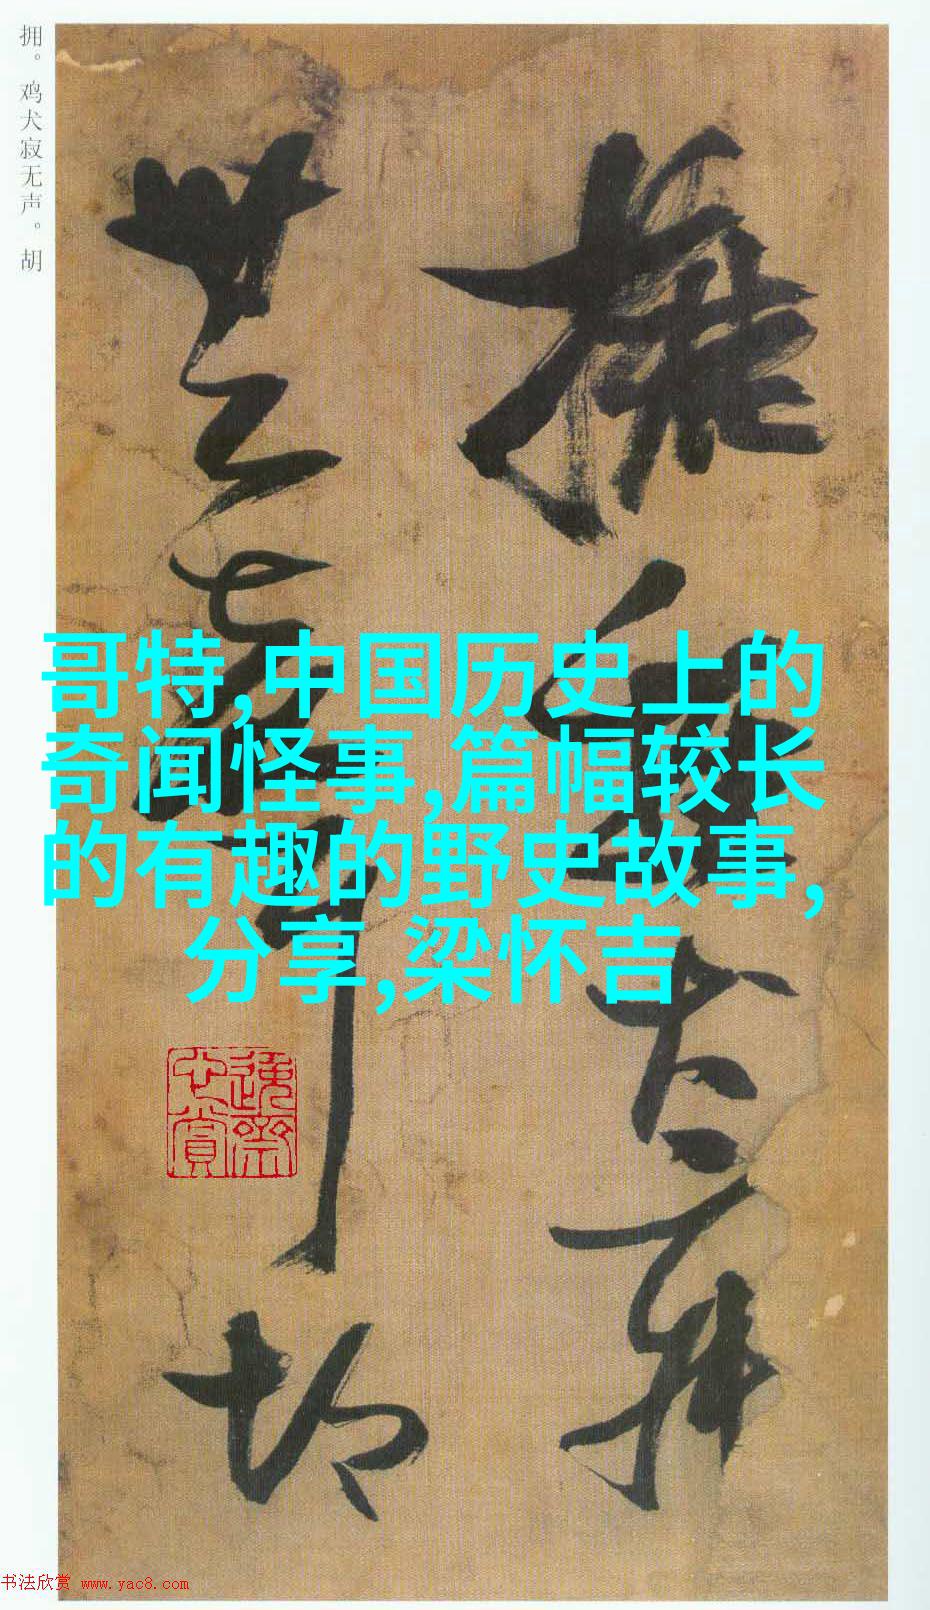 拥。鸡犬寂无声。胡
拥鸡犬寂
无声胡
哥特,中国历史上的
奇闻怪事,篇幅较长
的有趣的野史故事,
分享,梁怀吉
书法欣赏 www.yac8.com